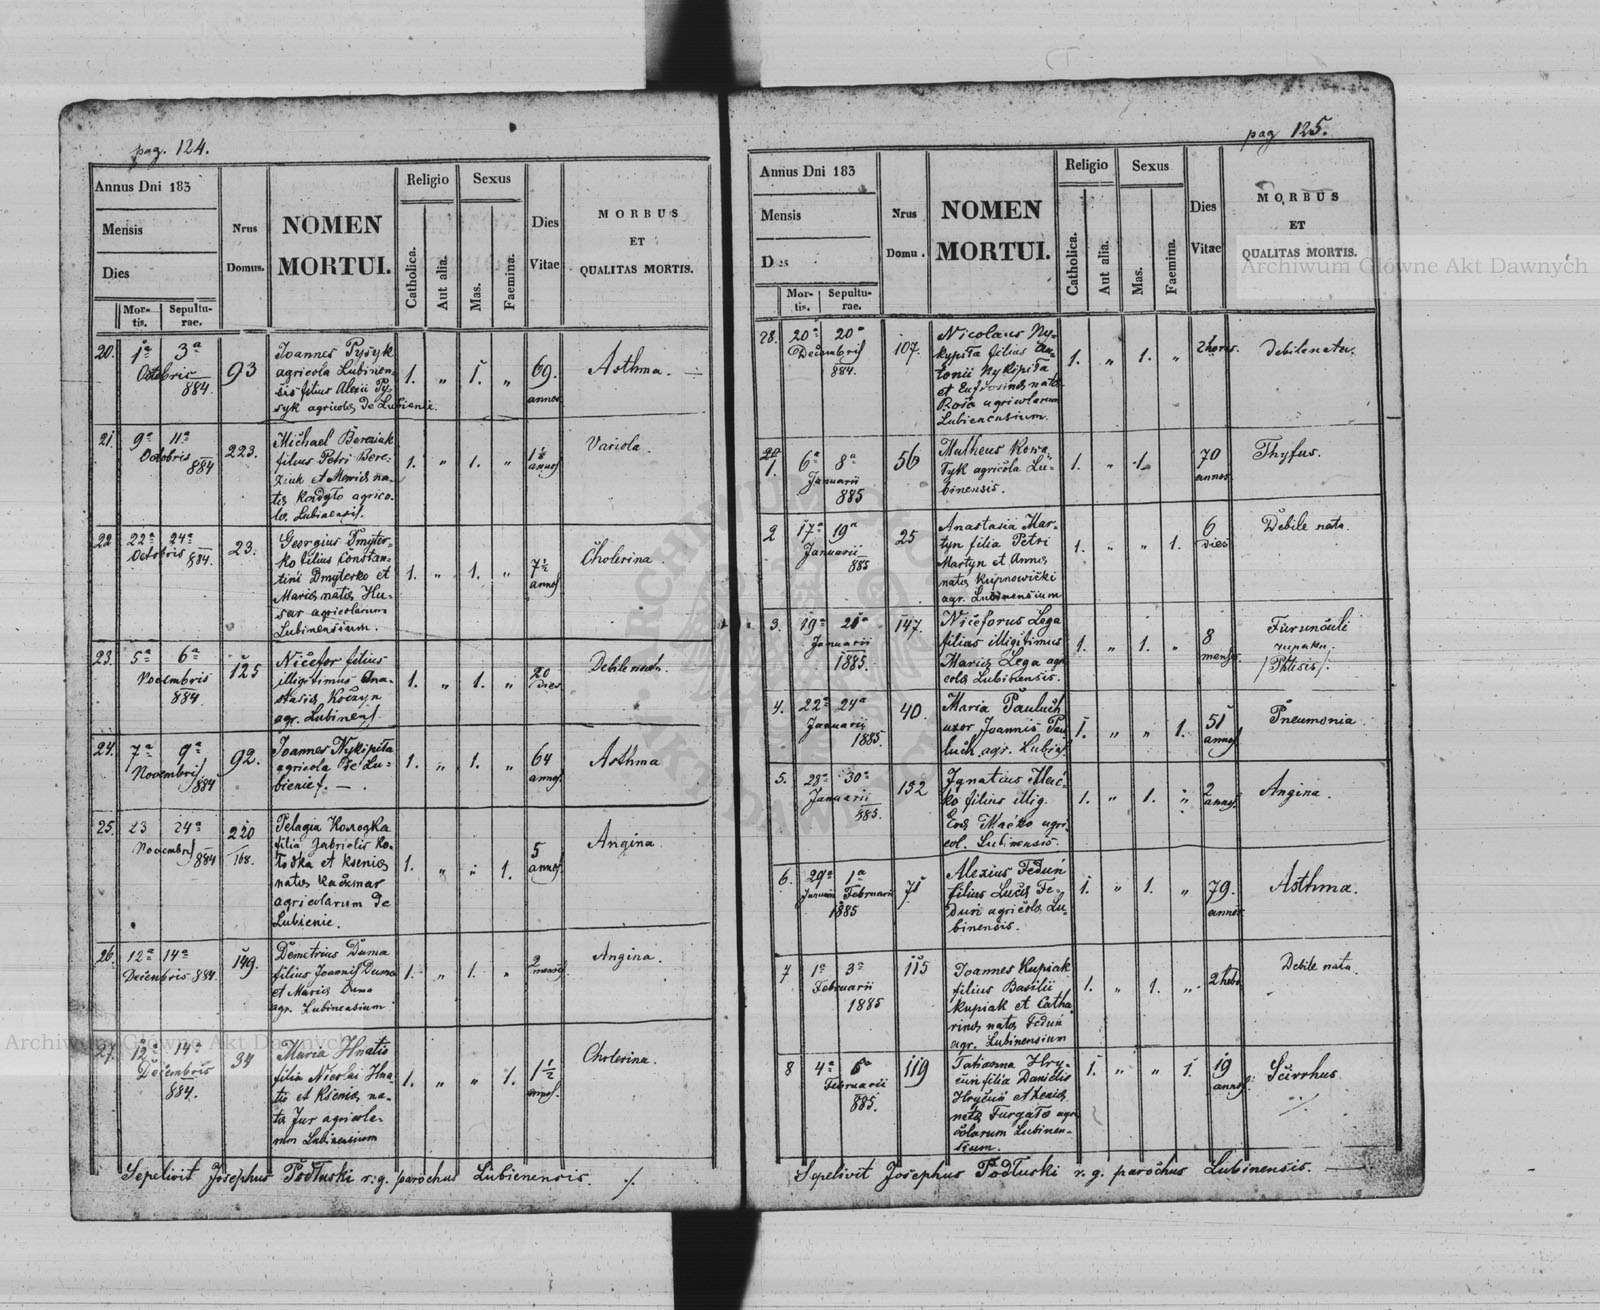 pag. 124.
Annus Dni 183
Mensis
Dies
Mor-
tis.
Sepultu-
rae.
Nrus
Domus.
NOMEN
MORTUI.
Religio
Catholica.
Aut alia.
Sexus
Mas.
Faemina.
Dies
Vitae
MORBUS
ET
QUALITAS MORTIS.
20. 1a 3a
Octobris
884.
93
Joannes Pysyk
agricola Lubinen-
sis filius Alexii Py-
syk agricola de Lubienie.
1. „ 1. „
69.
annos
Asthma.
21. 9a 11a
Octobris
884
223.
Michael Bereziuk
filius Petri Bere-
ziuk et Mariae na-
tae agrico-
lae Lubinensis.
1. „ 1. „
annos
Variola.
22 22a 24a
Octobris 884.
23.
Georgius Dmyter-
ko filius Constan-
tini Dmyterko et
Mariae natae Hu-
sar agricolarum
Lubinensium.
1. „ 1. „
7 1/2
annos
Cholerina.
23. 5a 6a
Novembris
884.
125
Nicefor filius
illigitimus Ana-
stasiae
agr. Lubinens.
1. „ 1. „
20
dies
Debile nat.
24. 7a 9a
Novembris
884
92.
Joannes Nykipiła
agricola de Lu-
bienie.
1. „ 1. „
64
annos
Asthma
25. 23 24a
Novembris 884
220
/168.
Pelagia Колодка
filia Gabrielis Ko-
łodka et Kseniae
natae Kaczmar
agricolarum de
Lubienie.
1. „ „ 1.
5
annos
Angina.
26. 12a 14a
Decembris 884.
149.
Demetrius Duma
filius Joannis Duma
et Mariae Duma
agr. Lubinensium
1. „ 1. „
2
menses
Angina.
27. 12a 14a
Decembris
884.
34
Maria Hnatio
filia Nicolai Hna-
tio et Kseniae na-
tae Jur agricola-
rum Lubinensium
1. „ „ 1.
1 1/2
annos.
Cholerina.
Sepelivit Josephus Podłuski r. g. parochus Lubienensis.
pag 125.
Annus Dni 183
Mensis
Dies
Mor-
tis.
Sepultu-
rae.
Nrus
Domu.
NOMEN
MORTUI.
Religio
Catholica.
Aut alia.
Sexus
Mas.
Faemina.
Dies
Vitae
MORBUS
ET
QUALITAS MORTIS.
28. 20a 20a
Decembris
884.
107.
Nicolaus Ny-
kipiła filius An-
tonii Nykipiła
et Eufrosinae natae
agricolarum
Lubienensium.
1. „ 1. „
2 horas.
Debile nata.
1. 6a 8a
Januarii
885
56
Matheus Kowa-
łyk agricola Lu-
binensis.
1. „ 1.
70
annos
Thyfus.
2 17a 19a
Januarii
885
25
Anastasia Mar-
tyn filia Petri
Martyn et Annae
natae Kupnowicki
agr. Lubinensium
1. „ „ 1.
6
dies
Debile nata.
3. 19a 21a
Januarii
1885.
147.
Niceforus Lega
filius illigitimus
Mariae Lega agr
colae Lubinensis.
1. „ 1. „
8
menses.
Furunculi
/Phtisis/.
4. 22a 24a
Januarii
1885.
40.
Maria Pauluch
uxor Joannis Pau
luch agr. Lubins
1. „ „ 1.
51
annos
Pneumonia.
5. 28a 30a
Januarii
885.
132
Ignatius Mac-
ko filius illig.
Evae Maćko agri-
col. Lubinensis.
1. „ 1. „
2
annos.
Angina.
6. 29a 1a
Januarii Februarii
1885
71
Alexius Fedun
filius Lucae Fe-
dun agricola Lu-
binensis.
1. „ 1. „
79.
annos
Asthma.
7 1a 3a
Februarii
1885
115
Joannes Kupiak
filius Basilii
Kupiak et Catha
rinae natae Fedun
agr. Lubinensium
1. „ 1. „
2 hebd
Debile nata.
8 4a 6a
Februarii
885.
119
Tatianna Hry-
cun filia Danielis
Hrycun et Xeniae
natae Furgało agri
colarum Lubinen-
sium.
1. „ „ 1.
19
annos
Scirrhus
Sepelivit Josephus Podłuski r. g. parochus Lubinensis.
Archiwum Główne Akt Dawnych
Archiwum Główne Akt Dawnych